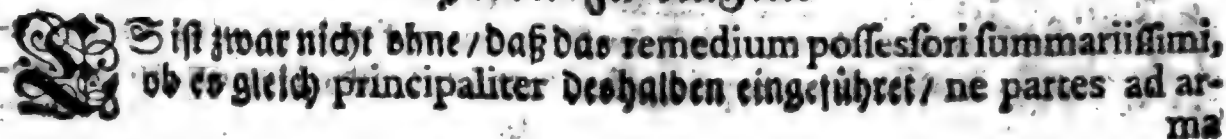 ES ist zwar nicht ohne / daß das remedium possessori summariissimi,
ob es gleich principaliter deshalben eingeführet / ne partes ad ar-
ma